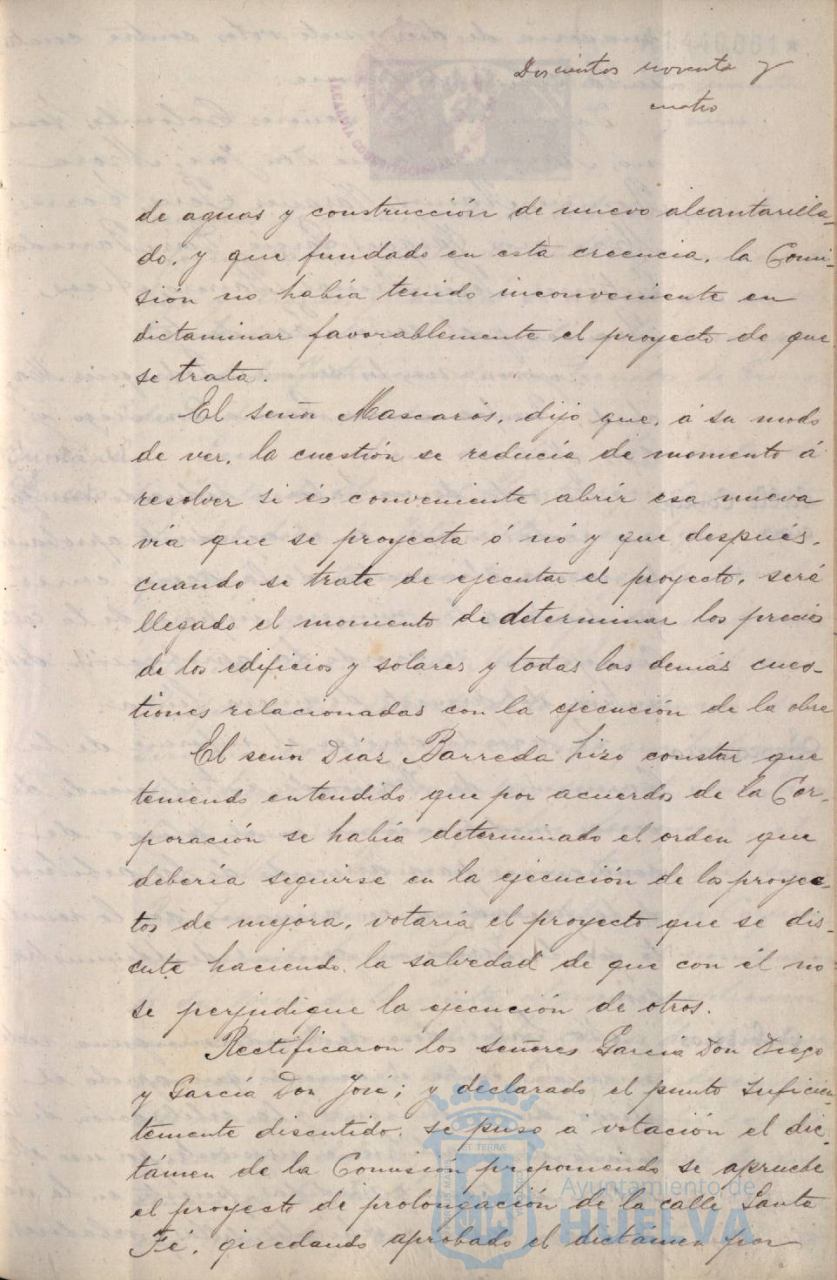 Doscientos noventa y
cuatro
de aguas y construcción de nuevo alcantarilla-
do, y que fundado en esta creencia, la Comi-
sión no había tenido inconveniente en
dictaminar favorablemente el proyecto de que
se trata.
El señor Mascarós, dijo que, á su modo
de ver, la cuestión se reducía de momento á
resolver si és conveniente abrir esa nueva
vía que se proyecta ó nó y que después,
cuando se trate de ejecutar el proyecto, será
llegado el momento de determinar los precios
de los edificios y solares y todas las demás cues-
tiones relacionadas con la ejecución de la obra
El señor Díaz Barreda hizo constar que
teniendo entendido que por acuerdo de la Cor-
poración se había determinado el orden que
debería seguirse en la ejecución de los proyec-
tos de mejora, votaría el proyecto que se dis-
cute haciendo la salvedad de que con él no
se perjudique la ejecución de otros.
Rectificaron los señores García Don Diego
y García Don José; y declarado el punto suficien-
temente discutido, se puso á votación el dic-
támen de la Comisión proponiendo se apruebe
el proyecto de prolongación de la calle Santa
Fé, quedando aprobado el dictámen por
Ayuntamiento de
HUELVA